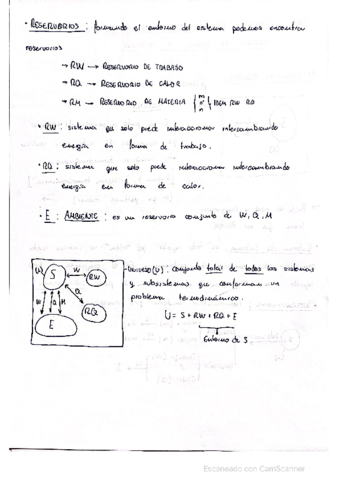 • RESERVORIOS : formando el entorno del sistema podemos encontrar
reservorios
→ RW → RESERVORIO DE TRABAJO
→ RQ → RESERVORIO DE CALOR
→ RM → RESERVORIO DE MATERIA { } IDEM RW RQ
• RW : sistema que solo puede interaccionar intercambiando
energía en forma de trabajo.
• RQ : sistema que solo puede interaccionar intercambiando
energía en forma de calor.
• E : AMBIENTE : es un reservorio conjunto de W, Q, M
(U) S W RW
W Q M Q
RQ
E
- UNIVERSO (U) : conjunto total de todos los sistemas
y subsistemas que conforman un
problema termodinámico.
U = S + RW + RQ + E
Entorno de S.
Escaneado con CamScanner